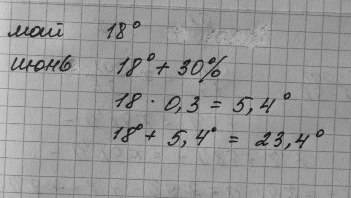 май 18°
июнь 18° + 30%
18 · 0,3 = 5,4°
18° + 5,4° = 23,4°